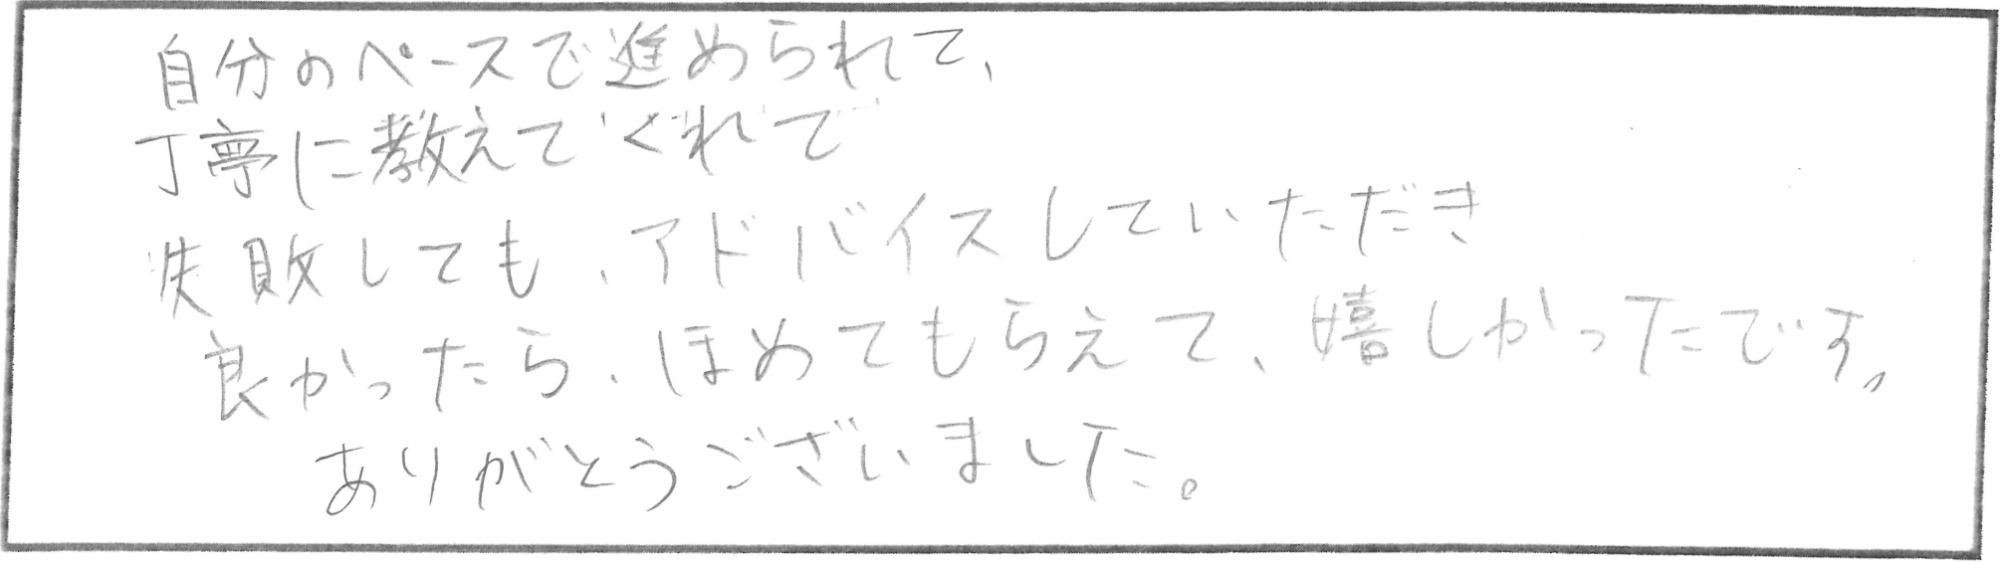 自分のペースで進められて、
丁寧に教えてくれて
失敗しても、アドバイスしていただき
良かったら、ほめてもらえて、嬉しかったです。
ありがとうございました。